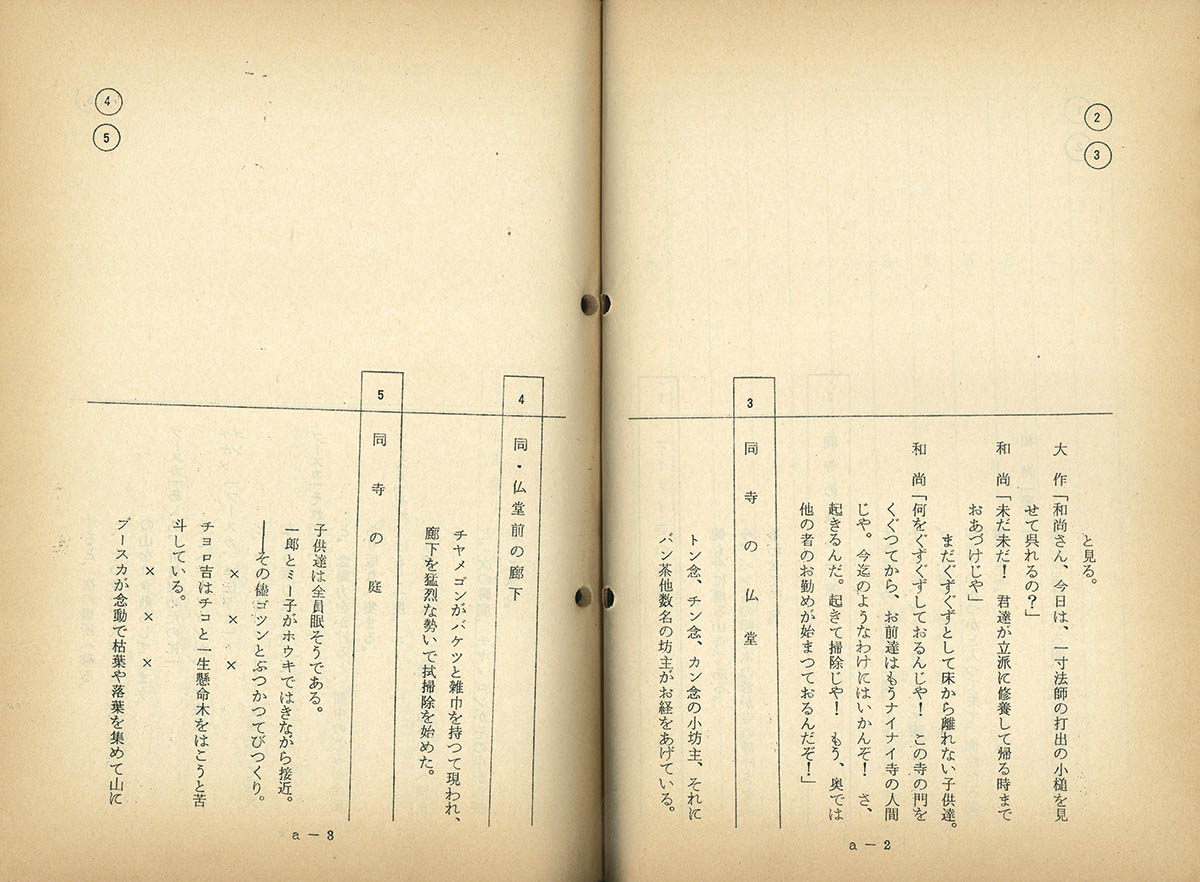 ②
③
と見る。
大 作「和尚さん、今日は、一寸法師の打出の小槌を見
せて呉れるの?」
和 尚「未だ未だ! 君達が立派に修養して帰る時まで
おあづけじや」
まだぐずぐずとして床から離れない子供達。
和 尚「何をぐずぐずしておるんじや! この寺の門を
くぐつてから、お前達はもうナイナイ寺の人間
じや。今迄のようなわけにはいかんぞ! さ、
起きるんだ。起きて掃除じや! もう、奥では
他の者のお勤めが始まつておるんだぞ!」
3 同寺の仏堂
トン念、チン念、カン念の小坊主、それに
バン茶他数名の坊主がお経をあげている。
a-2
④
⑤
4 同・仏堂前の廊下
チヤメゴンがバケツと雑巾を持つて現われ、
廊下を猛烈な勢いで拭掃除を始めた。
5 同寺の庭
子供達は全員眠そうである。
一郎とミー子がホウキではきながら接近。
――その儘ゴツンとぶつかつてびつくり。
× × ×
チヨロ吉はチコと一生懸命木をはこうと苦
斗している。
× × ×
ブースカが念動で枯葉や落葉を集めて山に
a-3